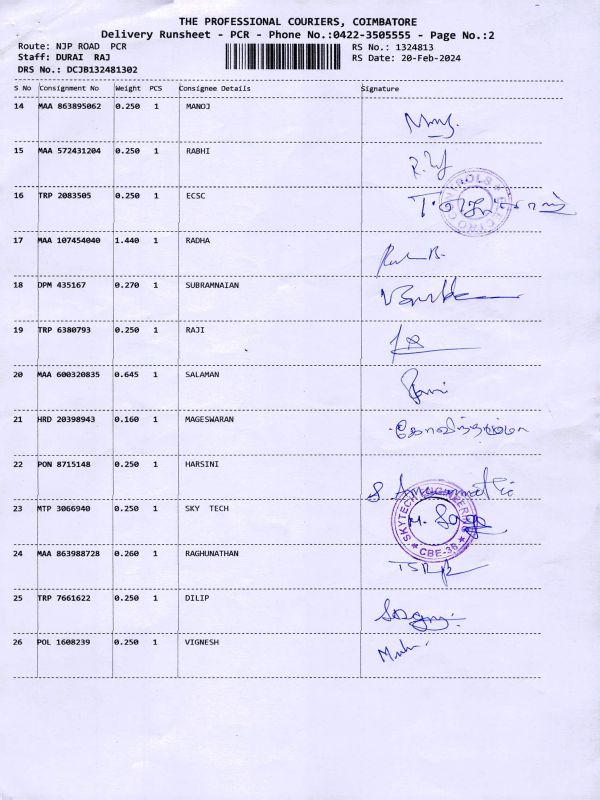 THE PROFESSIONAL COURIERS, COIMBATORE
Delivery Runsheet - PCR - Phone No.:0422-3505555 - Page No.:2
Route: NJP ROAD PCR RS No.: 1324813
Staff: DURAI RAJ RS Date: 20-Feb-2024
DRS No.: DCJB132481302
S No Consignment No Weight PCS Consignee Details Signature
14 MAA 863895062 0.250 1 MANOJ
15 MAA 572431204 0.250 1 RABHI
16 TRP 2083505 0.250 1 ECSC
17 MAA 107454040 1.440 1 RADHA
18 DPM 435167 0.270 1 SUBRAMNAIAN
19 TRP 6380793 0.250 1 RAJI
20 MAA 600320835 0.645 1 SALAMAN
21 HRD 20398943 0.160 1 MAGESWARAN
22 PON 8715148 0.250 1 HARSINI
23 MTP 3066940 0.250 1 SKY TECH
SKYTECH
CBE-36
24 MAA 863988728 0.260 1 RAGHUNATHAN
25 TRP 7661622 0.250 1 DILIP
26 POL 1608239 0.250 1 VIGNESH